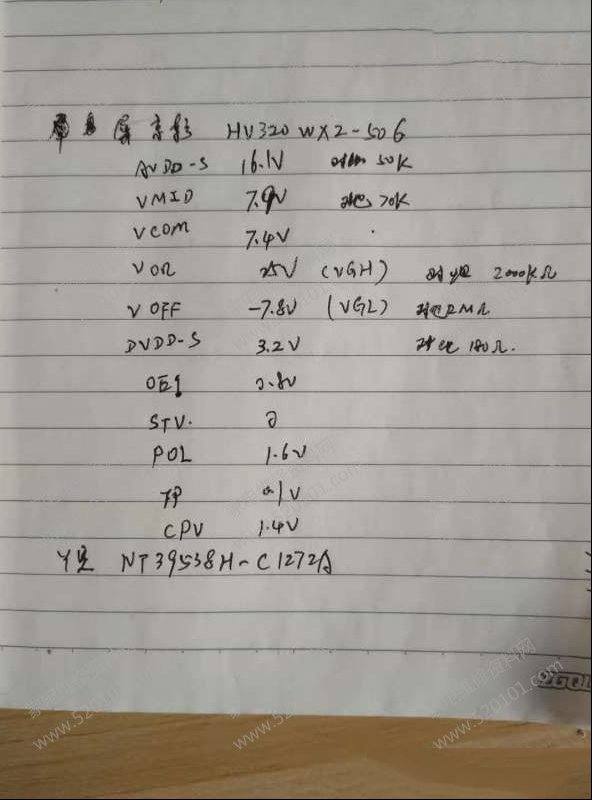 屏 京东 HV320WX2-506
AVDD-S 16.1V 对地 50K
VMID 7.9V 对地 70K
VCOM 7.4V
VON 25V (VGH) 对地 2000KΩ
VOFF -7.8V (VGL) 对地 2MΩ
DVDD-S 3.2V 对地 180Ω.
OE1 0.8V
STV. 0
POL 1.6V
TP 0.1V
CPV 1.4V
Y NT39538H-C1272A
www.520101.com
www.520101.com
www.520101.com